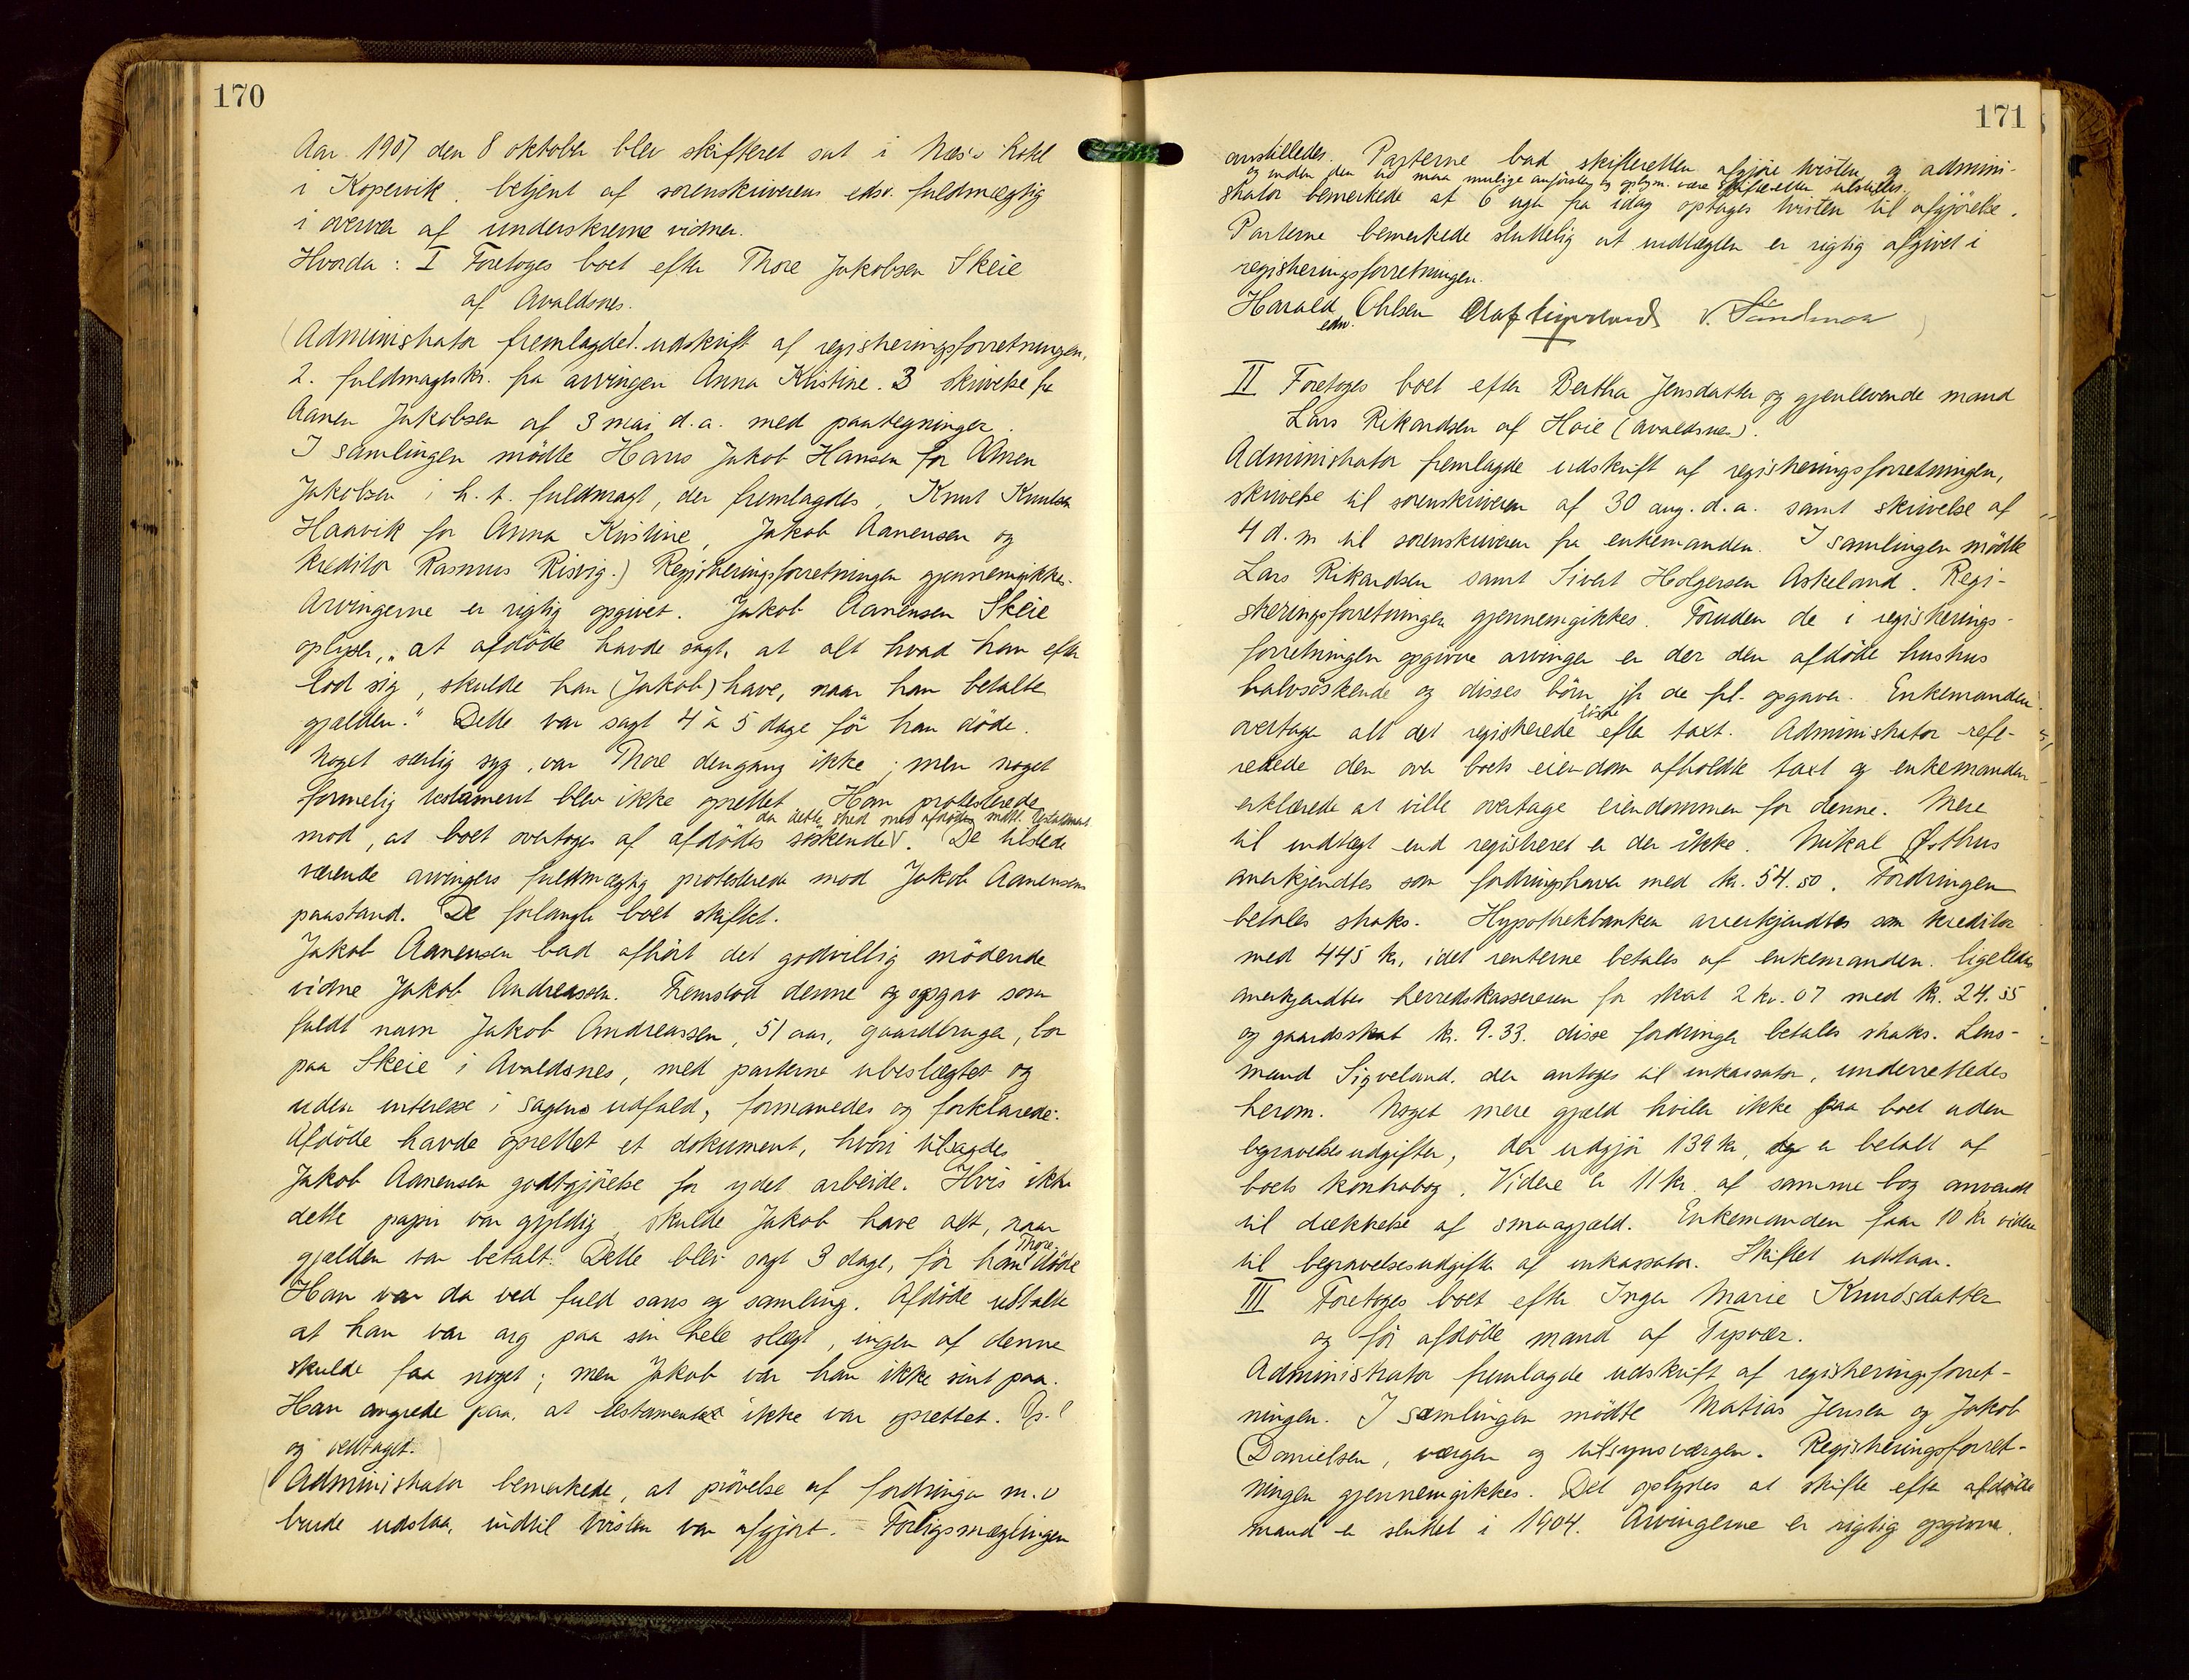 170
Aar 1907 den 8 oktober blev skifteret sat i Næs's hotel
i Kopervik, betjent af sorenskriverens edsv. fuldmægtig
i overvær af underskrevne vidner.
Hvorda: I Foretoges boet efter Thore Jakobsen Skeie
af Avaldsnes.
(Administrator fremlagde 1. udskrift af registreringsforretningen,
2. fuldmagtskr. fra arvingen Anna Kristine. 3 skrivelse fra
Aanen Jakobsen af 3 mai d.a. med paategninger.
I samlingen mödte Hans Jakob Hansen for Aanen
Jakobsen i h.t. fuldmagt, der fremlagdes, Knut Knutsen
Haavik for Anna Kristine, Jakob Aanensen og
kreditor Rasmus Risvig.) Registreringsforretningen gjennemgikkes.
Arvingerne er rigtig opgivet. Jakob Aanensen Skeie
oplyser, "at afdöde havde sagt, at alt hvad han efter
lod sig, skulde han (Jakob) have, naar han betalte
gjælden." Dette var sagt 4 à 5 dage för han döde.
Noget særlig syg, var Thore dengang ikke; men noget
formelig testament blev ikke oprettet. Han protesterede
da dette stred mod afdödes mdtl. testament
mod, at boet overtoges af afdödes söskende V. De tilstede
værende arvingers fuldmægtig protesterede mod Jakob Aanensens
paastand. De forlangte boet skiftet.
Jakob Aanensen bad afhört det godvillig mödende
vidne Jakob Andreassen. Fremstod denne og opgav som
fuldt navn Jakob Andreassen, 51 aar, gaardbruger, bor
paa Skeie i Avaldsnes, med parterne ubeslægtet og
uden interesse i sagens udfald, formanedes og forklarede:
Afdöde havde oprettet et dokument, hvori tilsagdes
Jakob Aanensen godtgjörelse for ydet arbeide. Hvis ikke
dette papir var gyldig, skulde Jakob have alt, naar
gjælden var betalt. Dette blev sagt 3 dage, för han Thore döde
Han var da ved fuld sans og samling. Afdöde udtalte
at han var arg paa sin hele slægt, ingen af denne
skulde faa noget; men Jakob var han ikke sint paa.
Han angrede paa, at testamentet ikke var oprettet. Op.l
og vedtaget.)
(Administrator bemerkede, at prövelse af fordringer m.v
burde udstaa, indtil tvisten var afgjort. Forligsmæglingen
171
anstilledes. Parterne bad skifteretten afgjöre tvisten, og admini-
og inden den tid maa mulige anförsler og oplysn. være skifteretten tilstillet.
strator bemerkede at 6 uger fra idag optages tvisten til afgjörelse.
Parterne bemerkede sluttelig at indtægten er rigtig afgivet i
registreringsforretningen.
Harald Ohlsen
edsv.
II Foretoges boet efter Bertha Jensdatter og gjenlevende mand
Lars Rikardsen af Höie (Avaldsnes).
Administrator fremlagde udskrift af registreringsforretningen,
skrivelse til sorenskriveren af 30 aug. d.a. samt skrivelse af
4 d.m til sorenskriveren fra enkemanden. I samlingen mödte
Lars Rikardsen samt Sivert Holgersen Askeland. Regi-
streringsforretningen gjennemgikkes. Foruden de i registrerings-
forretningen opgivne arvinger er der den afdöde hustrus
halvsöskende og disses börn jfr de frl. opgaver. Enkemanden
overtager alt det registrerede löse efter taxt. Administrator refe-
rerede den over boets eiendom afholdte taxt og enkemanden
erklærede at ville overtage eiendommen for denne. Mere
til indtægt end registreret er der ikke. Mikal Östhus
anerkjendtes som fordringshaver med kr. 54.50. Fordringen
betales straks. Hypothekbanken anerkjendtes som kreditor
med 445 kr, idet renterne betales af enkemanden. ligeledes
anerkjendtes herredskassereren for skat 2 kv. 07 med kr. 24.55
og gaardsskat kr. 9.33. disse fordringer betales straks. Lens-
mand Sigveland, der antoges til inkassator, underrettedes
herom. Noget mere gjæld hviler ikke paa boet uden
begravelsesudgifter, der udgjör 139 kr, og er betalt af
boets kontrabog. Videre er 11 kr af samme bog anvendt
til dækkelse af smaagjæld. Enkemanden faar 10 kr videre
til begravelsesudgifter af inkassator. Skiftet udstaar.
III Foretoges boet efter Inger Marie Knudsdatter
og för afdöde mand af Tysvær.
Administrator fremlagde udskrift af registreringsforret-
ningen. I samlingen mödte Matias Jensen og Jakob
Danielsen, værgen og tilsynsværgen. Registreringsforret-
ningen gjennemgikkes. Det oplystes at skifte efter afdöde
mand er sluttet i 1904. Arvingerne er rigtig opgivne.